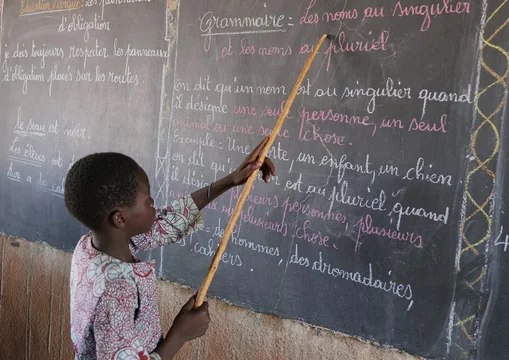 Education Civique
d'obligation
je dois toujours respecter les panneaux
d'obligation placés sur les routes.
le seau est noir.
Les élèves
Grammaire = Les noms au singulier
et les noms au pluriel
On dit qu'un nom est au singulier quand
il désigne une seule personne, un seul
animal ou une seule chose.
Exemple = Une, un enfant, un chien
On dit qu'un est au pluriel, quand
il désigne plusieurs personnes, plusieurs
plusieurs chose.
des hommes, des dromadaires,
cahiers.
4